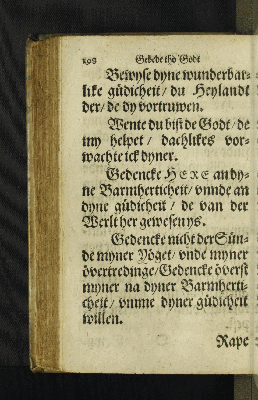 198 Gebede tho Godt
Bewyse dyne wunderbar-
like güdicheit / du Heylandt
der / de dy vortruwen.
Wente du bist de Godt / de
my helpet / dachlikes vor-
wachte ick dyner.
Gedencke HERE an dy-
ne Barmherticheit / vnnde an
dyne güdicheit / de van der
Werlt her gewesen ys.
Gedencke nicht der Sün-
de myner Jöget / vnde myner
övertredinge / Gedencke överst
myner na dyner Barmherti-
cheit / vmme dyner güdicheit
willen.
Rape